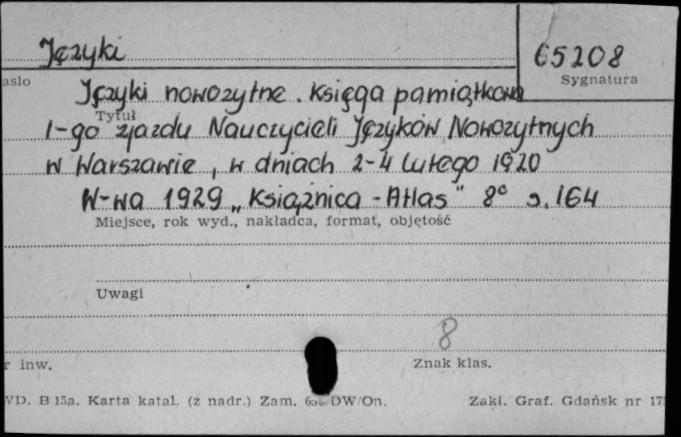 Języki
65208
asło
Sygnatura
Języki nowozytne. Księga pamiątkowa
Tytuł
I-go zjazdu Nauczycieli Języków Nowozytnych
w Warszawie, w dniach 2-4 lutego 1920
W-wa 1929 „Książnica - Atlas" 8° s. 164
Miejsce, rok wyd., nakładca, format, objętość
Uwagi
8
r inw.
Znak klas.
VD. B 15a. Karta katal. (z nadr.) Zam. DW/On.
Zakł. Graf. Gdańsk nr 17